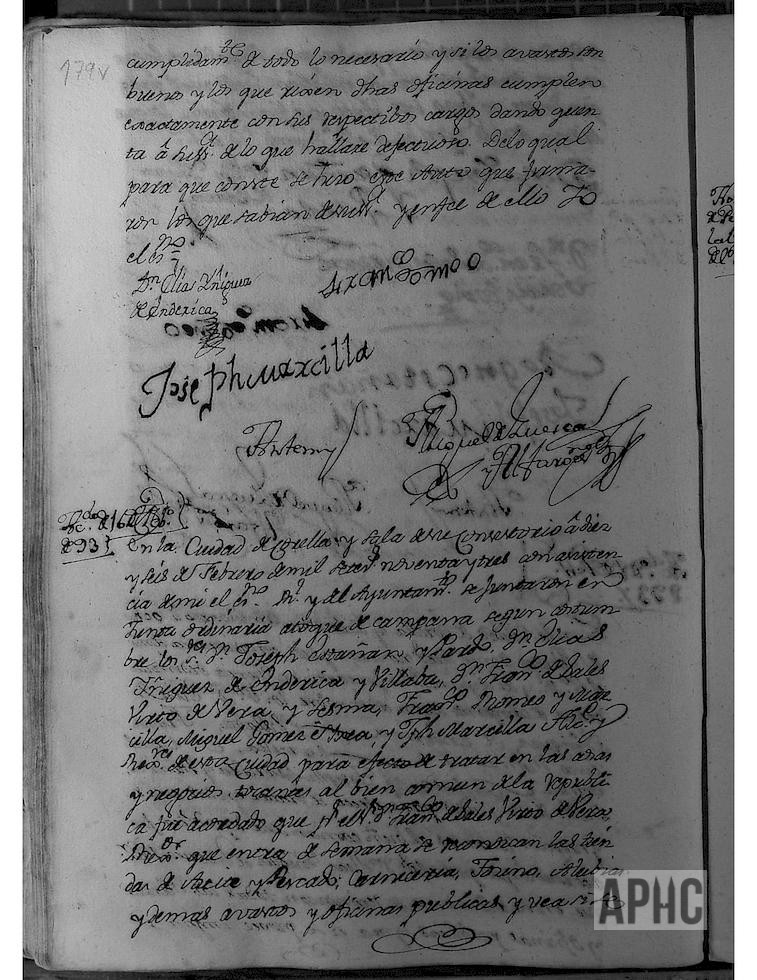 179v
cumplidam.te de todo lo necesario y si los avastos son
buenos y los que rixen dhas oficinas cumplen
exactamente con sus respectibos cargos dando quen
ta a su ss.a de lo que hallare defectuoso. De lo qual
para que conste se hizo este Auto que firma-
ron los que sabian de su ss.a y en fee de ello Yo
el es.no
D.n Elias Yñiguez
de Enderica
Fran.co Romeo
Joseph Marcilla
Ante my
Miguel de Luesca
y Alfaro
de 16 de Feb.o
de 93
En la Ciudad de Corella y sala de su Consistorio a diez
y seis de Febrero de mil setez.s noventa y tres con asisten
cia de mi el es.no R.l y del Ayuntam.to se juntaron en
Junta ordinaria a toque de campana segun costum
bre los S.res D.n Joseph Escañan y Pardo, D.n Elias
Yñiguez de Enderica y Villaba, D.n Fran.co de Sales
Virto de Vera, y Sesma, Fran.co Romeo y Mar
cilla, Miguel Gomez, y Jph Marcilla Alc.e y
Rex.res de esta Ciudad para efecto de tratar en las cosas
y negocios tocantes al bien comun de la republi
ca fue acordado que p.r el S.r D.n Fran.co de Sales Virto de Vera,
Rex.or que entra de semana se reconozcan las tien
das de Aceite y Pescado, Carniceria, Tocino,
y demas avastos y oficinas publicas y vea si se
APHC